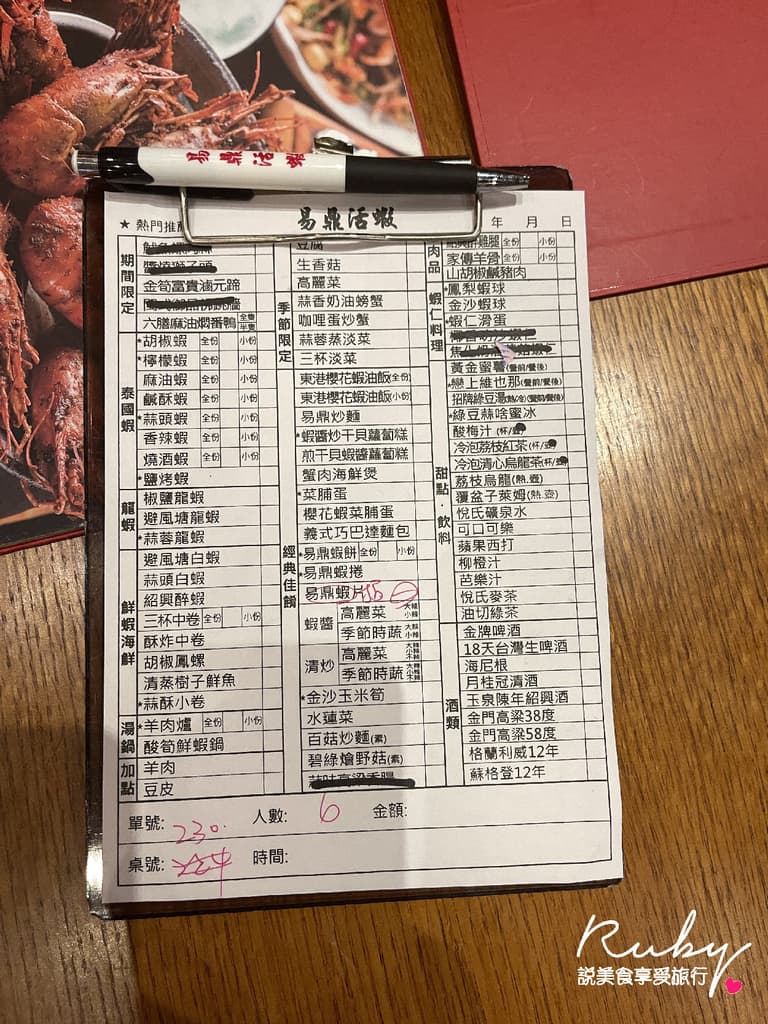 易鼎活蝦
易鼎活蝦
年 月 日
★ 熱門推
期間限定
金筍富貴滷元蹄
六膳麻油燜番鴨 全隻 半隻
泰國蝦
*胡椒蝦 全份 小份
*檸檬蝦 全份 小份
麻油蝦 全份 小份
鹹酥蝦 全份 小份
*蒜頭蝦 全份 小份
香辣蝦 全份 小份
燒酒蝦 全份 小份
*鹽烤蝦
龍蝦
椒鹽龍蝦
避風塘龍蝦
*蒜蓉龍蝦
鮮蝦海鮮
避風塘白蝦
蒜頭白蝦
紹興醉蝦
三杯中卷 全份 小份
酥炸中卷
胡椒鳳螺
清蒸樹子鮮魚
*蒜酥小卷
湯鍋
*羊肉爐 全份 小份
酸筍鮮蝦鍋
加點
羊肉
豆皮
豆腐
生香菇
高麗菜
季節限定
蒜香奶油螃蟹
咖哩蛋炒蟹
蒜蓉蒸淡菜
三杯淡菜
經典佳餚
東港櫻花蝦油飯(全份)
東港櫻花蝦油飯(小份)
易鼎炒麵
*蝦醬炒干貝蘿蔔糕
煎干貝蝦醬蘿蔔糕
蟹肉海鮮煲
*菜脯蛋
櫻花蝦菜脯蛋
義式巧巴達麵包
*易鼎蝦餅 全份 小份
*易鼎蝦捲
易鼎蝦片
蝦醬 高麗菜 大辣 小辣
季節時蔬 大辣 小辣
清炒 高麗菜
季節時蔬
*金沙玉米筍
水蓮菜
百菇炒麵(素)
碧綠燴野菇(素)
肉品
全份 小份
家傳羊骨 全份 小份
山胡椒鹹豬肉
蝦仁料理
*鳳梨蝦球
金沙蝦球
*蝦仁滑蛋
甜點・飲料
黃金蜜薯(餐前/餐後)
*戀上維也那(餐前/餐後)
招牌綠豆湯(熱/冷)(餐前/餐後)
*綠豆蒜啥蜜冰
酸梅汁(杯/壺)
冷泡荔枝紅茶(杯/壺)
冷泡清心烏龍茶(杯/壺)
荔枝烏龍(熱.壺)
覆盆子萊姆(熱.壺)
悅氏礦泉水
可口可樂
蘋果西打
柳橙汁
芭樂汁
悅氏麥茶
油切綠茶
酒類
金牌啤酒
18天台灣生啤酒
海尼根
月桂冠清酒
玉泉陳年紹興酒
金門高粱38度
金門高粱58度
格蘭利威12年
蘇格登12年
單號: 230. 人數: 6 金額:
桌號: 時間:
Ruby
說美食享受旅行